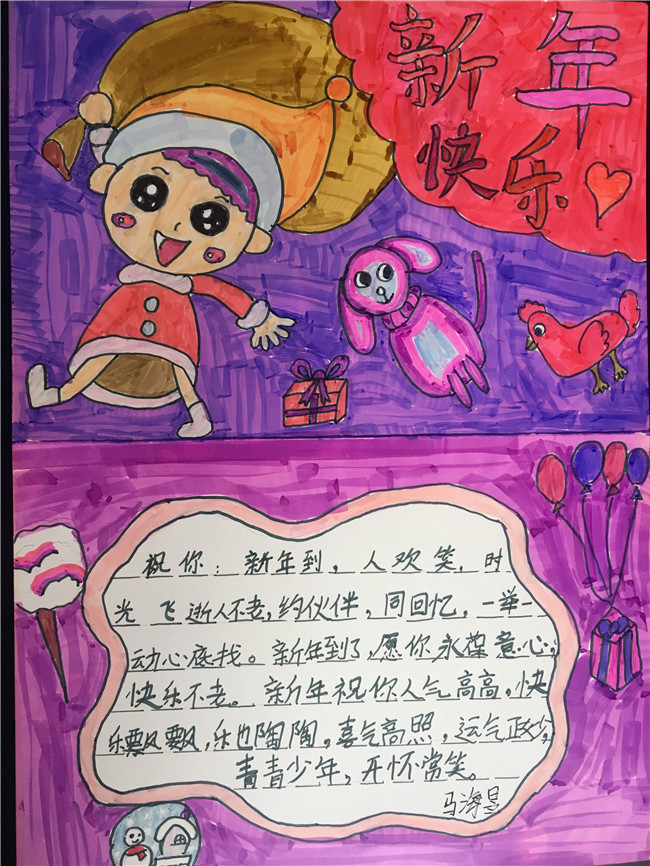 新年
快乐
祝你：新年到，人欢笑，时
光飞逝人不老，约伙伴，同回忆，一举一
动心底找。新年到了，愿你永葆意心，
快乐不老。新年祝你人气高高，快
乐飘飘，乐也陶陶，喜气高照，运气
青青少年，开怀常笑。
马海